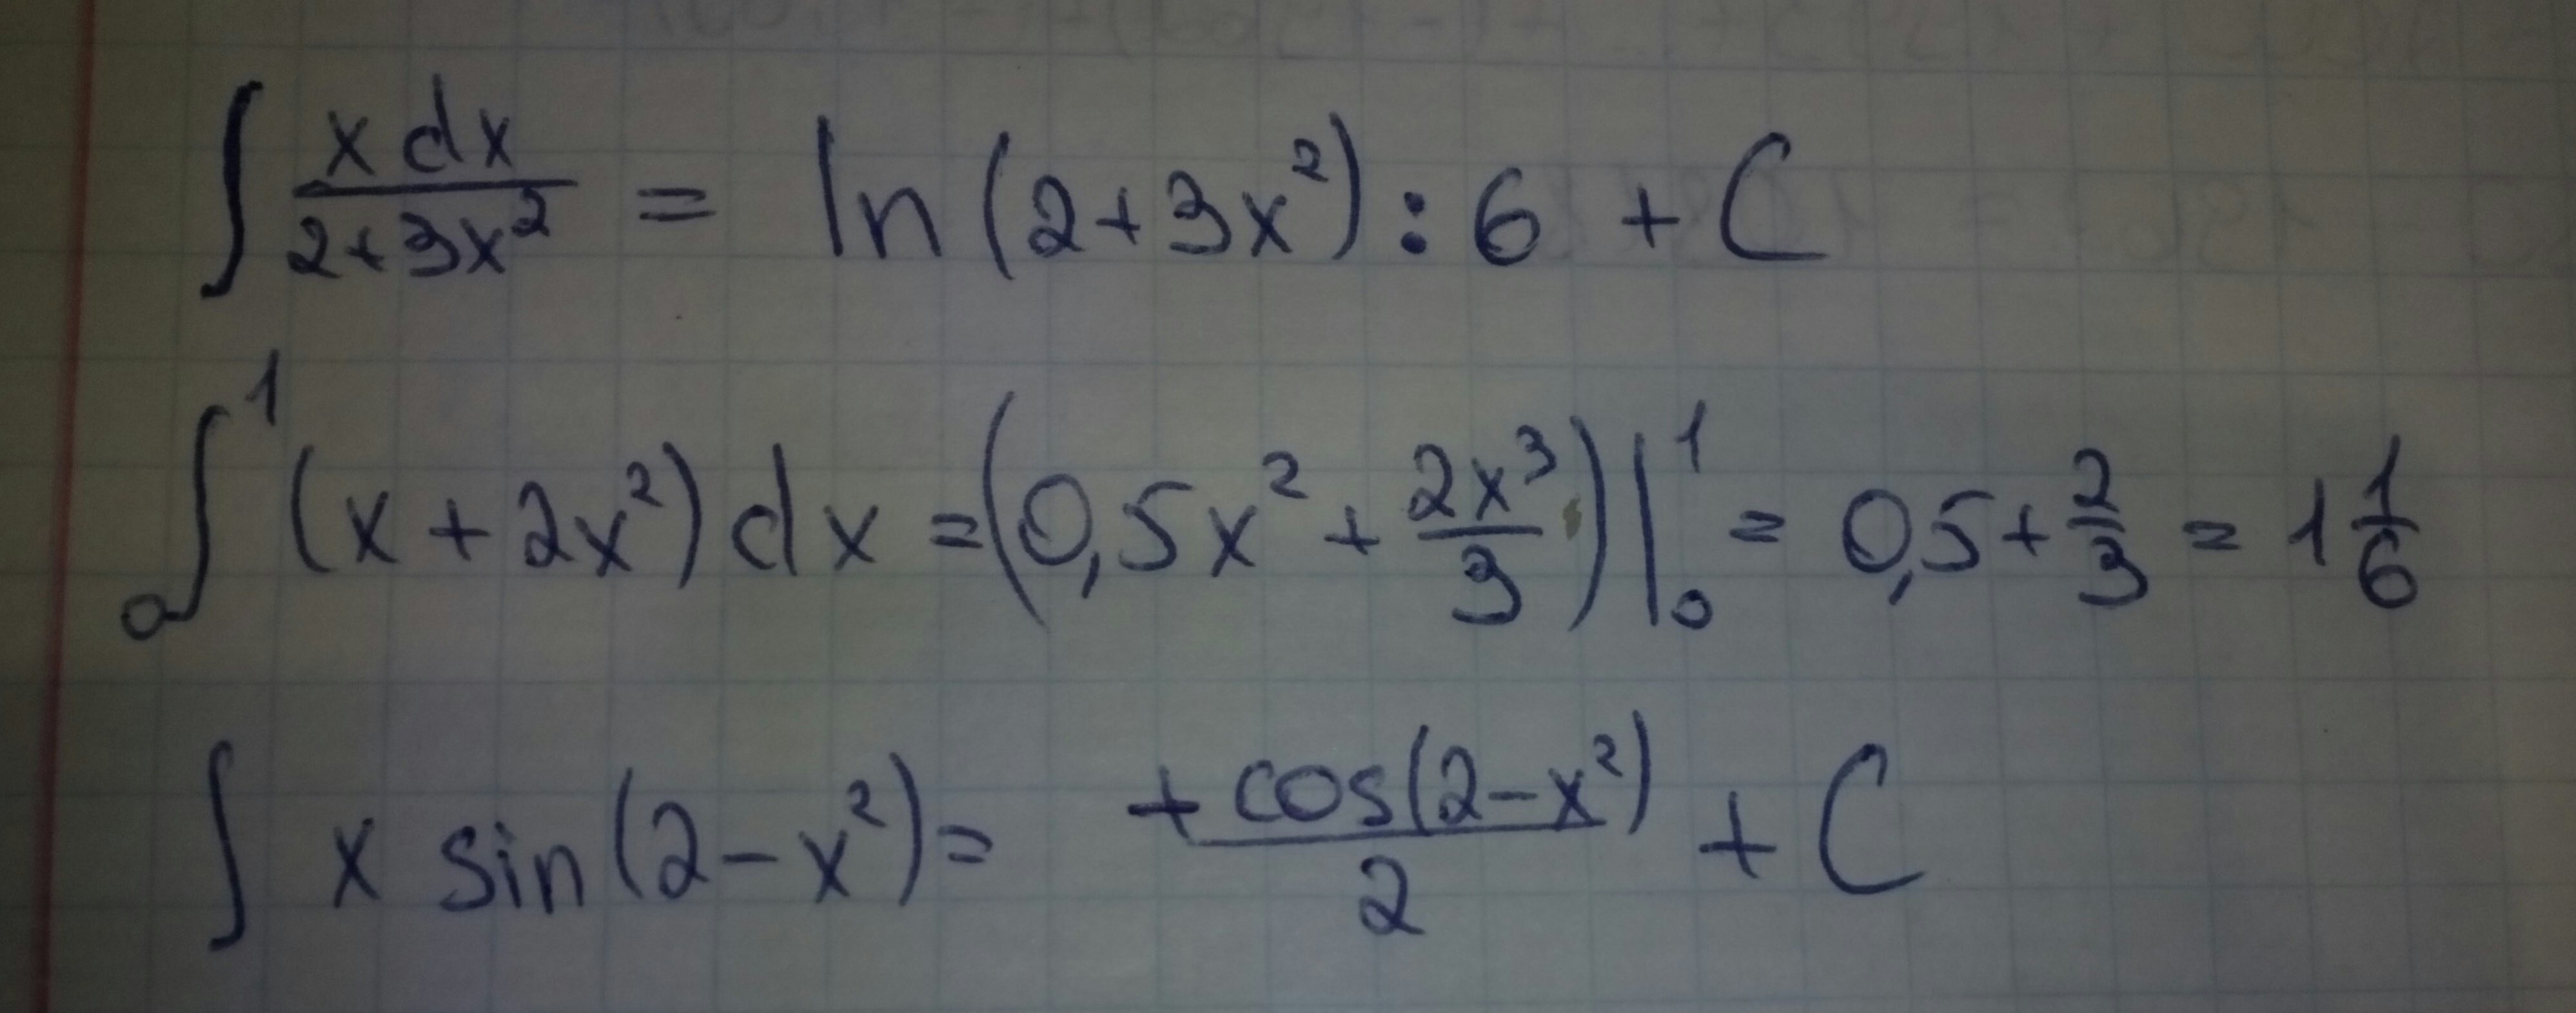 ∫ x dx / 2+3x² = ln(2+3x²) : 6 + C
₀∫¹ (x + 2x²) dx = (0,5x² + 2x³/3)|₀¹ = 0,5 + 2/3 = 1 1/6
∫ x sin(2-x²) = +cos(2-x²)/2 + C